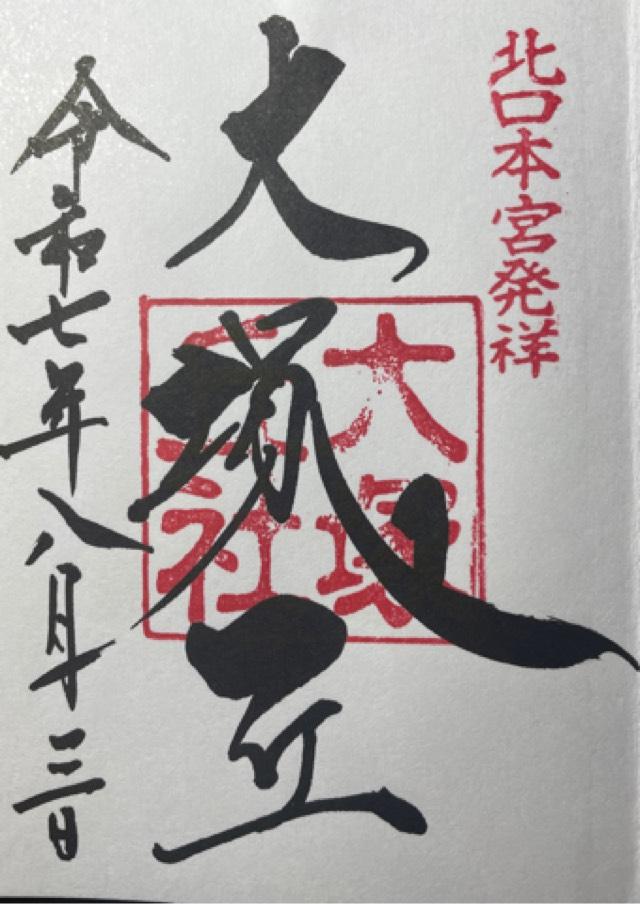 北口本宮発祥
大塚丘
大塚丘社
令和七年八月三日